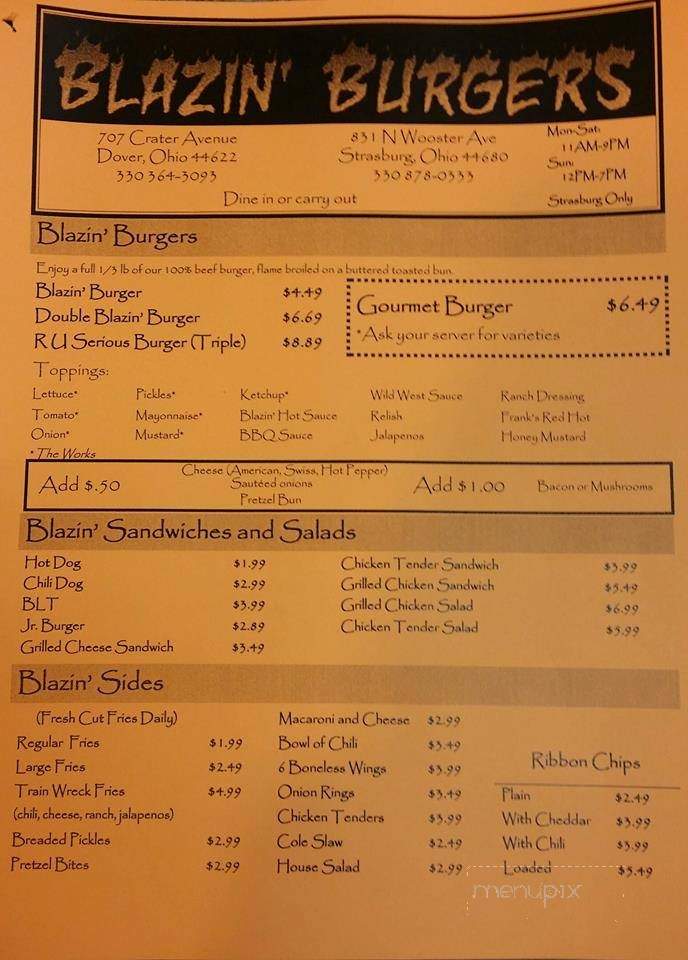 BLAZIN' BURGERS
707 Crater Avenue
Dover, Ohio 44622
330 364-3093
831 N Wooster Ave
Strasburg, Ohio 44680
330 878-0333
Mon-Sat:
11AM-9PM
Sun:
12PM-7PM
Strasburg Only
Dine in or carry out
Blazin' Burgers
Enjoy a full 1/3 lb of our 100% beef burger, flame broiled on a buttered toasted bun.
Blazin' Burger $4.49
Double Blazin' Burger $6.69
R U Serious Burger (Triple) $8.89
Gourmet Burger $6.49
*Ask your server for varieties
Toppings:
Lettuce* Pickles* Ketchup* Wild West Sauce Ranch Dressing
Tomato* Mayonnaise* Blazin' Hot Sauce Relish Frank's Red Hot
Onion* Mustard* BBQ Sauce Jalapenos Honey Mustard
*The Works
Add $.50
Cheese (American, Swiss, Hot Pepper)
Sautéed onions
Pretzel Bun
Add $1.00 Bacon or Mushrooms
Blazin' Sandwiches and Salads
Hot Dog $1.99
Chili Dog $2.99
BLT $3.99
Jr. Burger $2.89
Grilled Cheese Sandwich $3.49
Chicken Tender Sandwich $3.99
Grilled Chicken Sandwich $5.49
Grilled Chicken Salad $6.99
Chicken Tender Salad $5.99
Blazin' Sides
(Fresh Cut Fries Daily)
Regular Fries $1.99
Large Fries $2.49
Train Wreck Fries $4.99
(chili, cheese, ranch, jalapenos)
Breaded Pickles $2.99
Pretzel Bites $2.99
Macaroni and Cheese $2.99
Bowl of Chili $3.49
6 Boneless Wings $3.99
Onion Rings $3.49
Chicken Tenders $3.99
Cole Slaw $2.49
House Salad $2.99
Ribbon Chips
Plain $2.49
With Cheddar $3.99
With Chili $3.99
Loaded $5.49
menupix